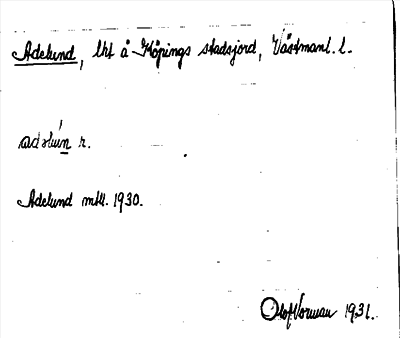 Adelund, lht å Köpings stadsjord, Västmanl. l.
Adelund mtl. 1930.
Olof Vorman 1931.